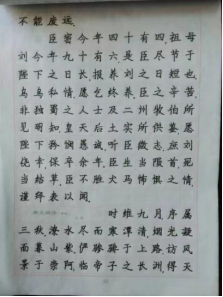 不能废远。
臣密今年四十有四,祖母
刘今年九十有六,是臣尽节于
陛下之日长,报养刘之日短也。
乌鸟私情,愿乞终养。臣之辛苦,
非独蜀之人士及二州牧伯所
见明知,皇天后土实所共鉴。愿
陛下矜愍愚诚,听臣微志,庶刘
侥幸,保卒余年。臣生当陨首,死
当结草。臣不胜犬马怖惧之情,
谨拜表以闻。
时维九月,序属
三秋。潦水尽而寒潭清,烟光凝
而暮山紫。俨骖騑于上路,访风
景于崇阿。临帝子之长洲,得天